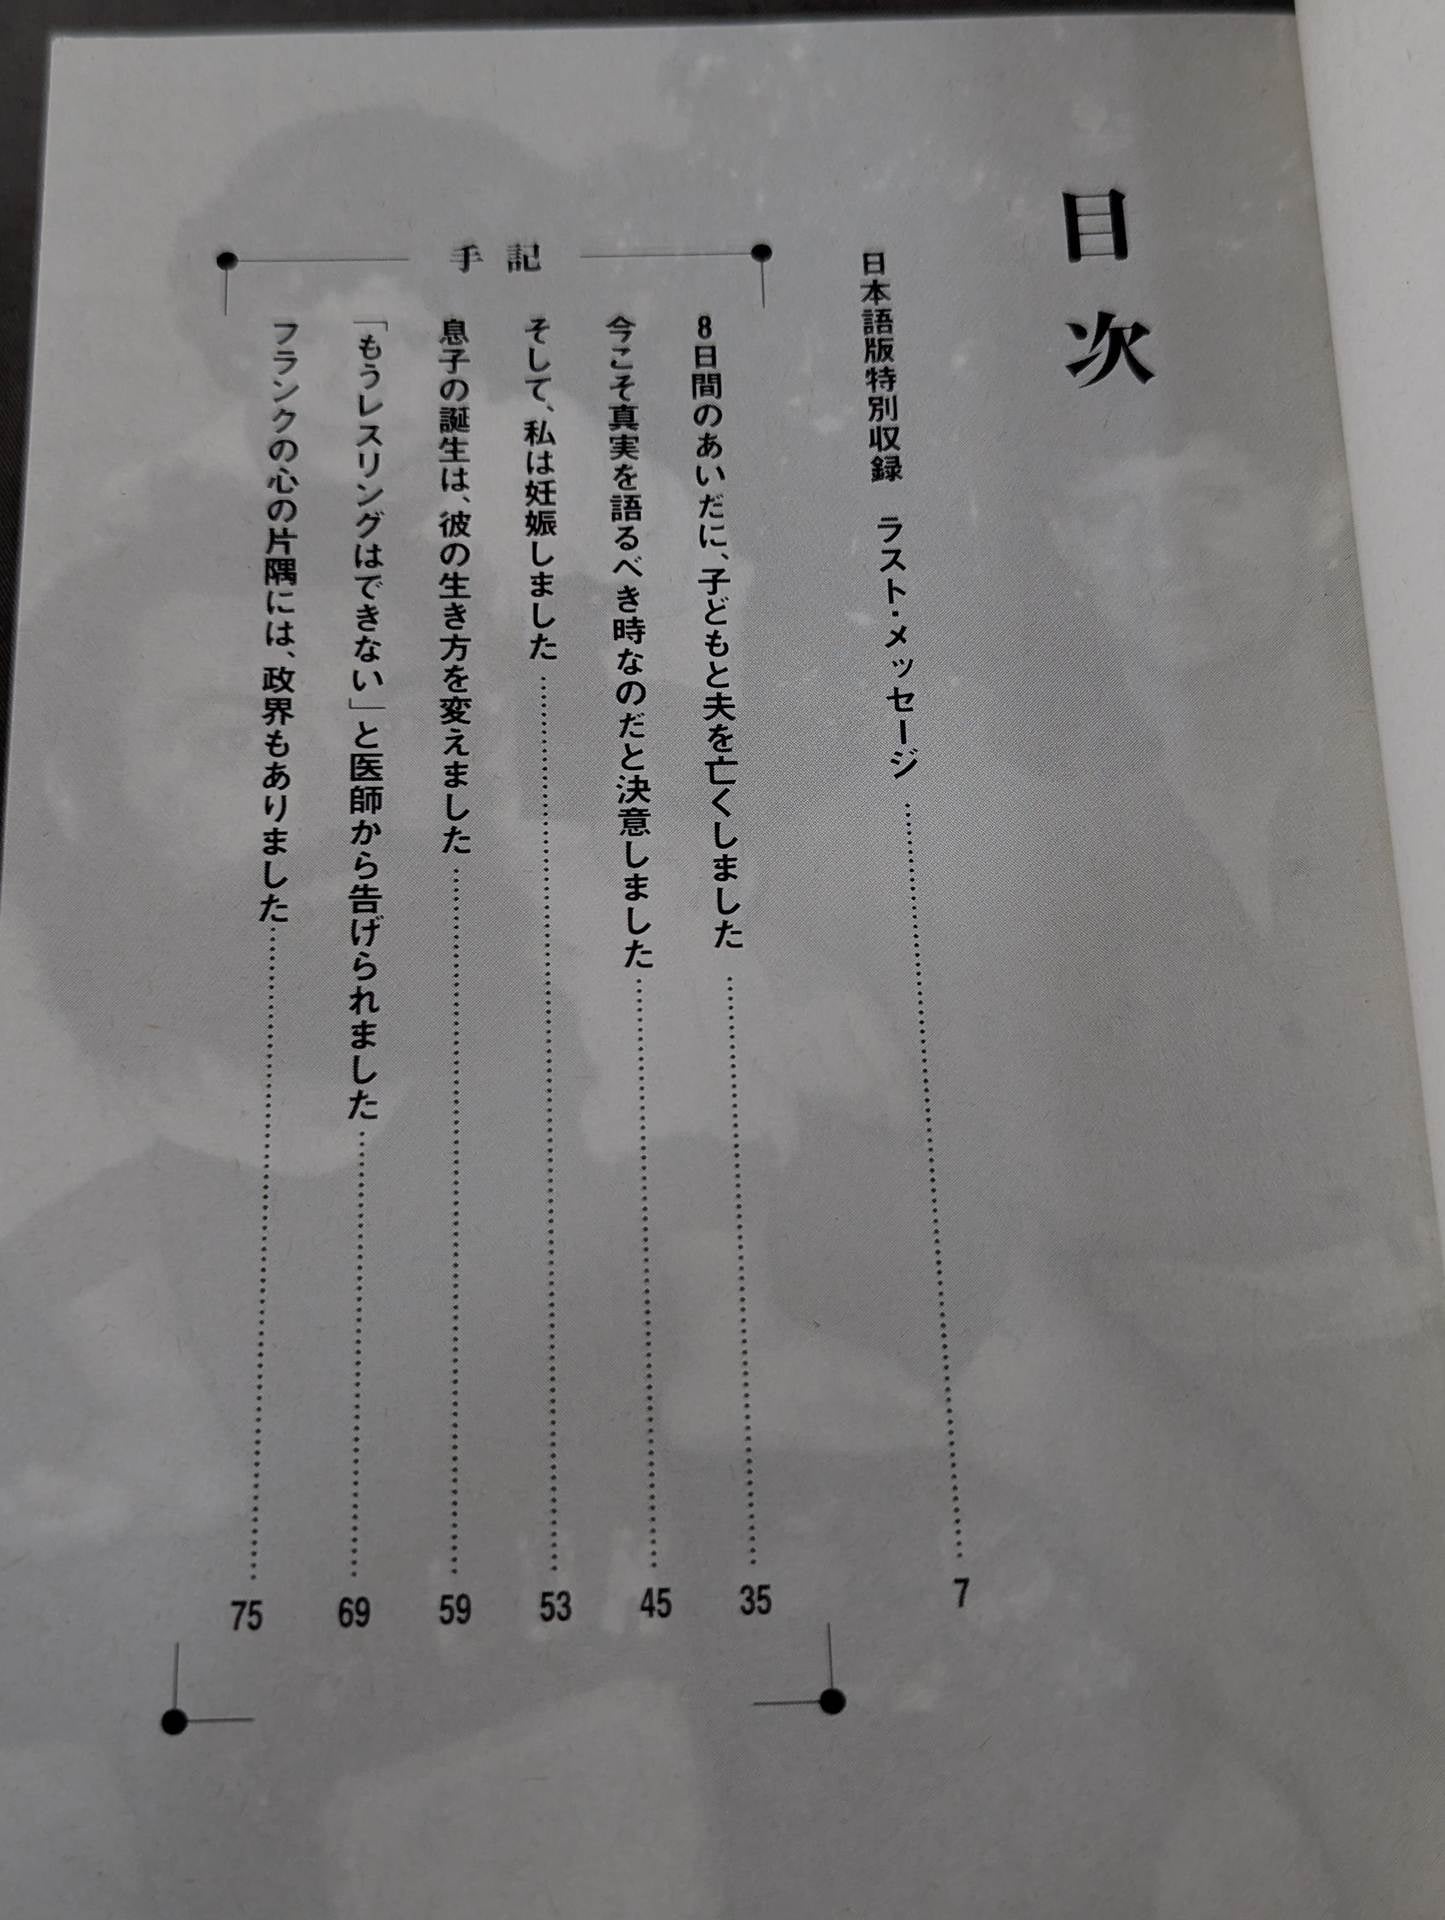 目次
日本語版特別収録　ラスト・メッセージ……………7
手記
8日間のあいだに、子どもと夫を亡くしました……………35
今こそ真実を語るべき時なのだと決意しました……………45
そして、私は妊娠しました……………53
息子の誕生は、彼の生き方を変えました……………59
「もうレスリングはできない」と医師から告げられました……………69
フランクの心の片隅には、政界もありました……………75